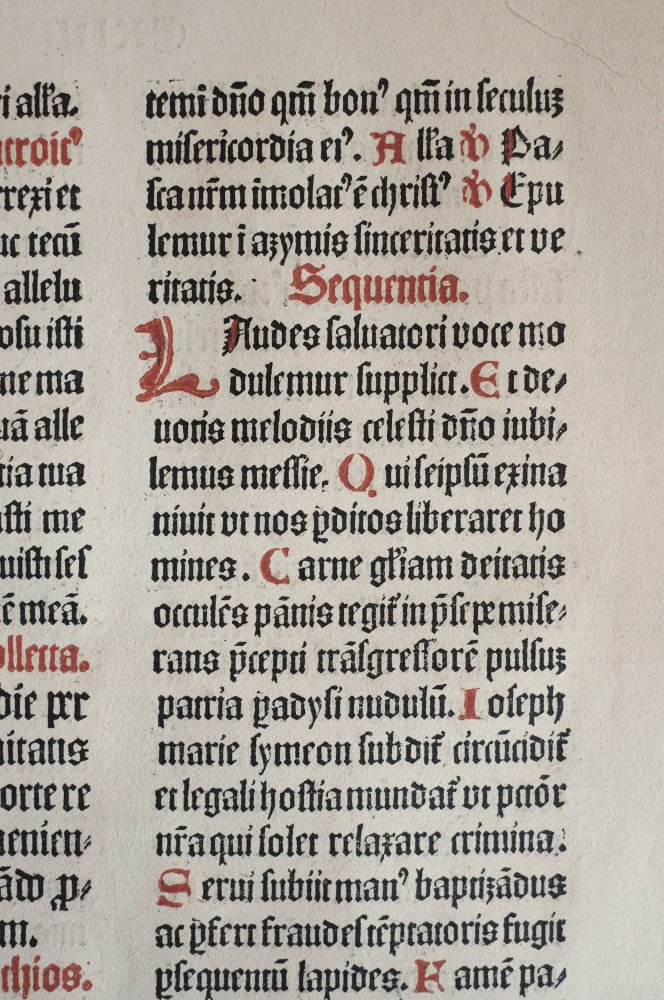 i all̄a.
ntroitꝰ
rrexi et
uc tecū
allelu
osu isti
ne ma
uā alle
tia tua
sti me
uisti ses
ē meā.
ollecta.
die per
nitatis
orte re
uenien⸗
ādo ꝓ⸗
m.
thios.
temī dn̄o qm̄ bonꝰ qm̄ in seculuꝫ
misericordia eiꝰ. All̄a ℣ Pa⸗
sca nr̄m īmolatꝰ ē christꝰ ℣ Epu
lemur ī azymis sinceritatis et ve
ritatis. Sequentia.
LAudes saluatori voce mo
dulemur supplici. Et de⸗
uotis melodiis celesti dn̄o iubi⸗
lemus messie. Qui seipsū exina
niuit vt nos ꝑditos liberaret ho
mines. Carne gl̄iam deitatis
occulēs pānis tegit̄ in p̄sepe mise⸗
rans p̄cepti trāsgressorē pulsuꝫ
patria ꝑadysi nudulū. Ioseph
marie symeon subdit̄ circūcidit̄
et legali hostia mundat̄ vt pctōr
nr̄a qui solet relaxare crimina.
Serui subiit manꝰ baptizādus
ac ꝑfert fraudes tēptatoris fugit
ꝑsequentū lapides. Famē pa⸗